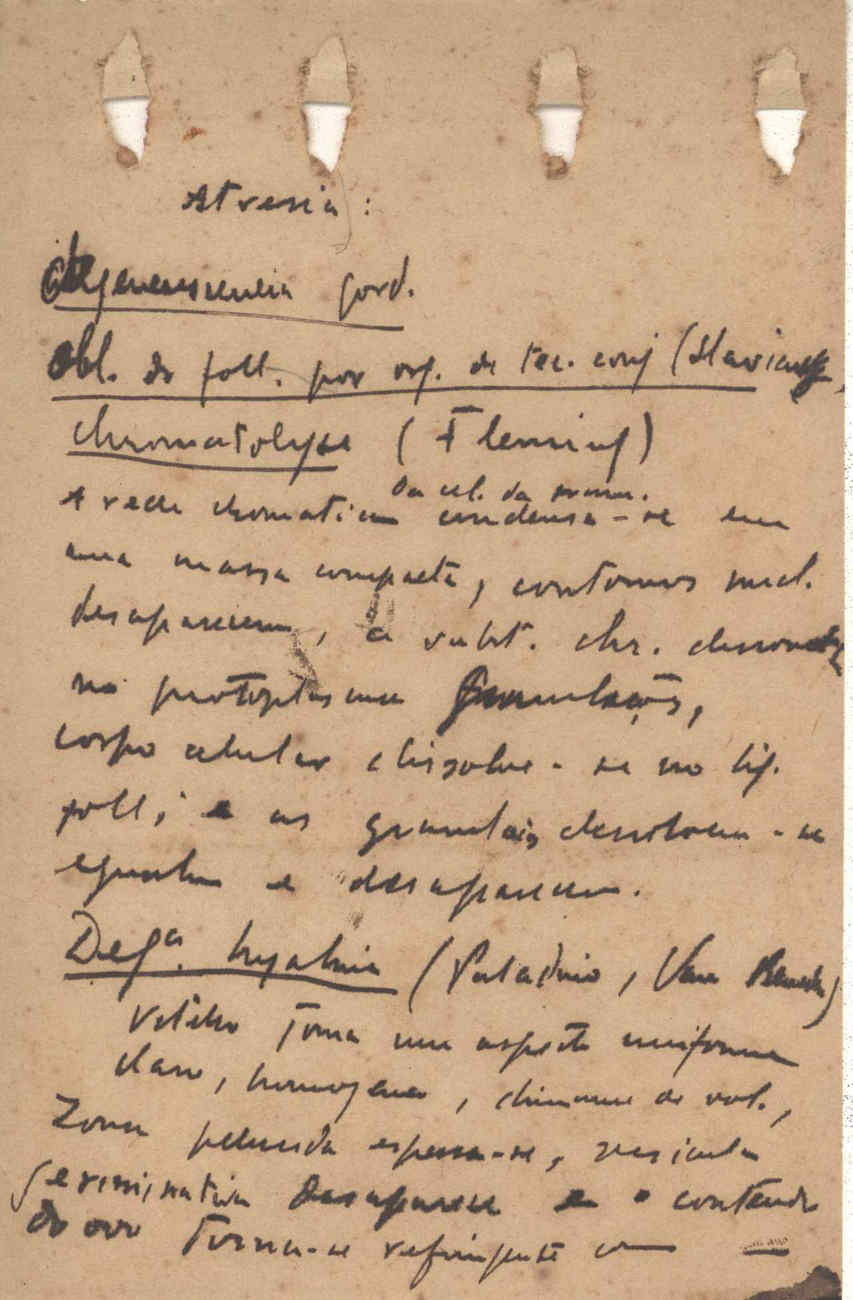 Atresia:
degenerescencia gord.
Obl. do foll. por org. de tec. conj (Slaviansky,
Chromatolyse (Fleming)
da cel. da
A rede chromatica condensa-se em
uma massa compacta, contornos nucl.
desaparecem, a subst. chr.
no protoplasma granulações,
corpo celular dissolve-se no liq.
foll, e as granulações dissolvem-se
egualm e desaparecem.
Degª. hyalina (Paladino, Van Beneden)
Vitello toma um aspecto uniforme
claro, homogeneo, diminue de vol.,
Zona pelucida espessa-se, vesicula
germinativa desaparece e o conteudo
do ovo torna-se refringente